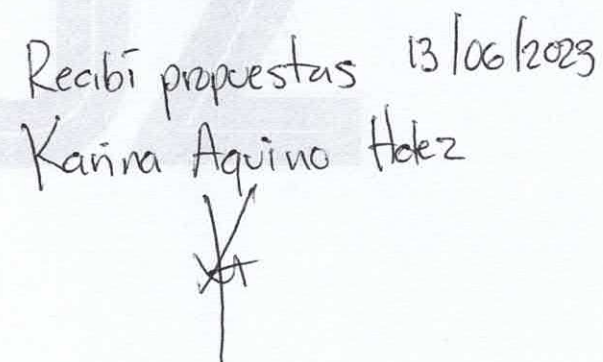 Recibí propuestas 13/06/2023
Karina Aquino Hdez